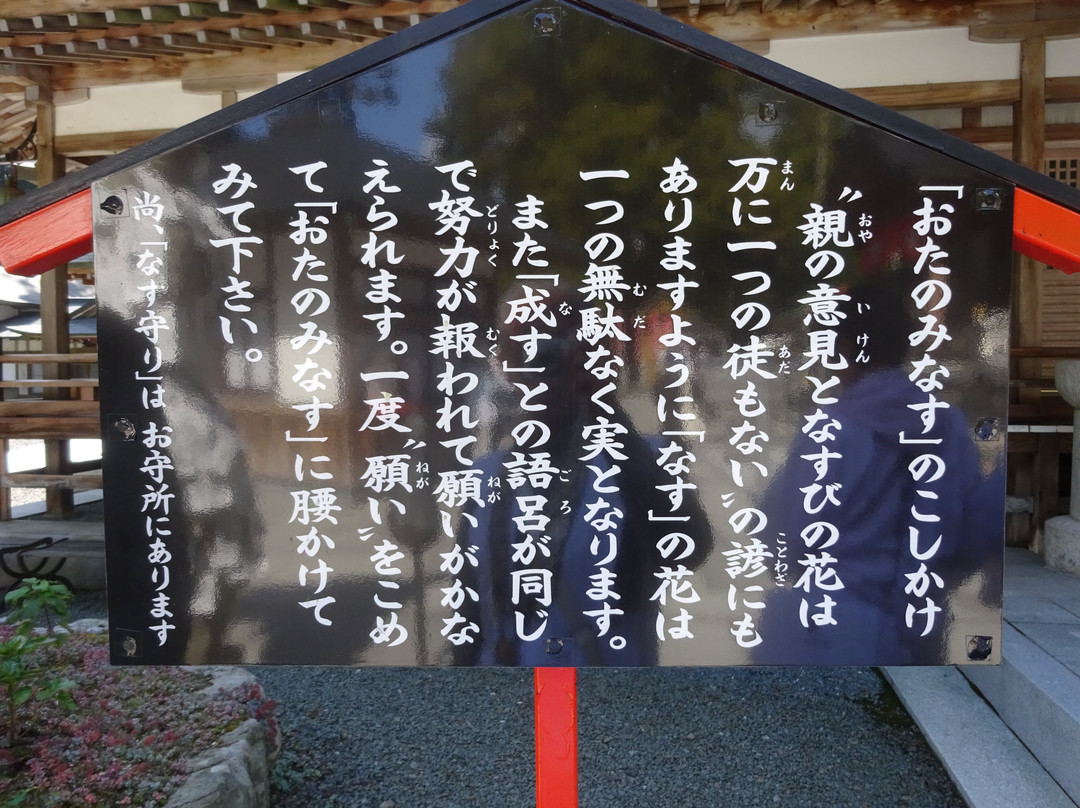 「おたのみなす」のこしかけ
〝親の意見となすびの花は
万に一つの徒もない〟の諺にも
ありますように「なす」の花は
一つの無駄なく実となります。
また「成す」との語呂が同じ
で努力が報われて願いがかな
えられます。一度〝願い〟をこめ
て「おたのみなす」に腰かけて
みて下さい。
尚、「なす守り」は お守所にあります